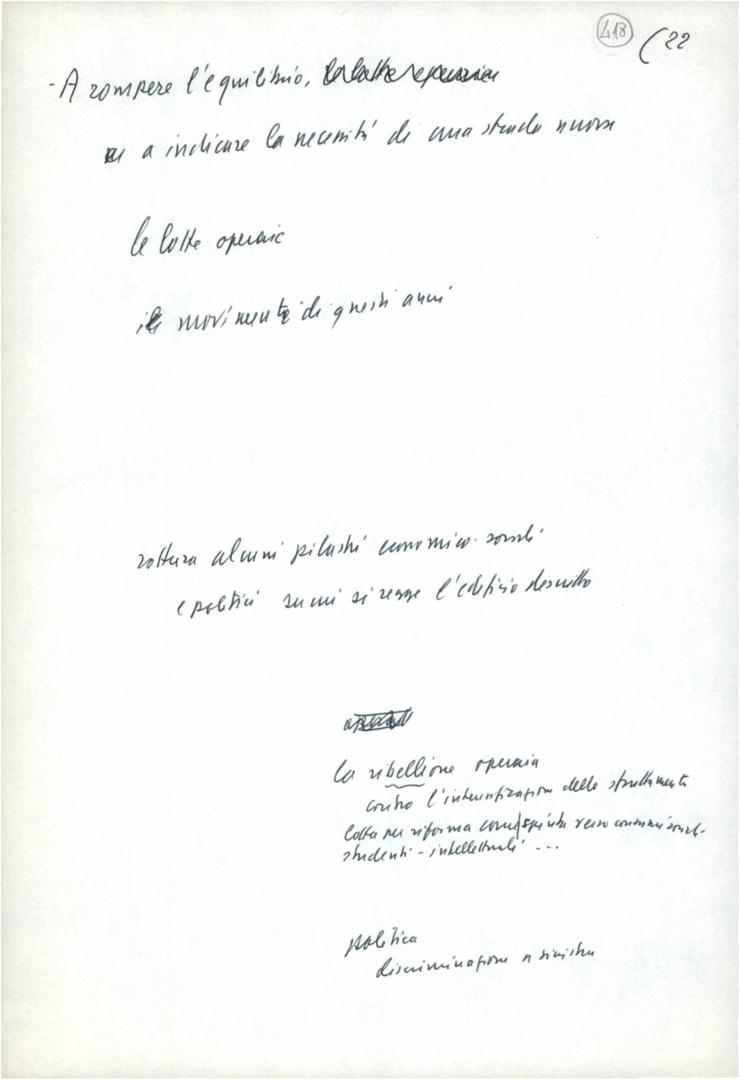 418 (22
- A rompere l'equilibrio, le lotte operaie
a indicare la necessità di una strada nuova
le lotte operaie
il movimento di questi anni
rottura alcuni pilastri economico-sociali
e politici su cui si regge l'edificio descritto
la ribellione operaia
contro l'intensificazione dello sfruttamento
lotta per riforma come spinta verso consumi sociali-
studenti - intellettuali ...
politica
discriminazione a sinistra